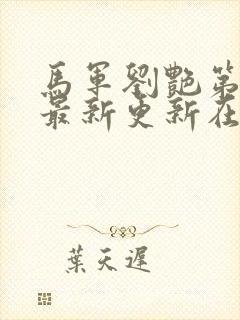 馬軍劉艷第
最新更新在
葉天遲